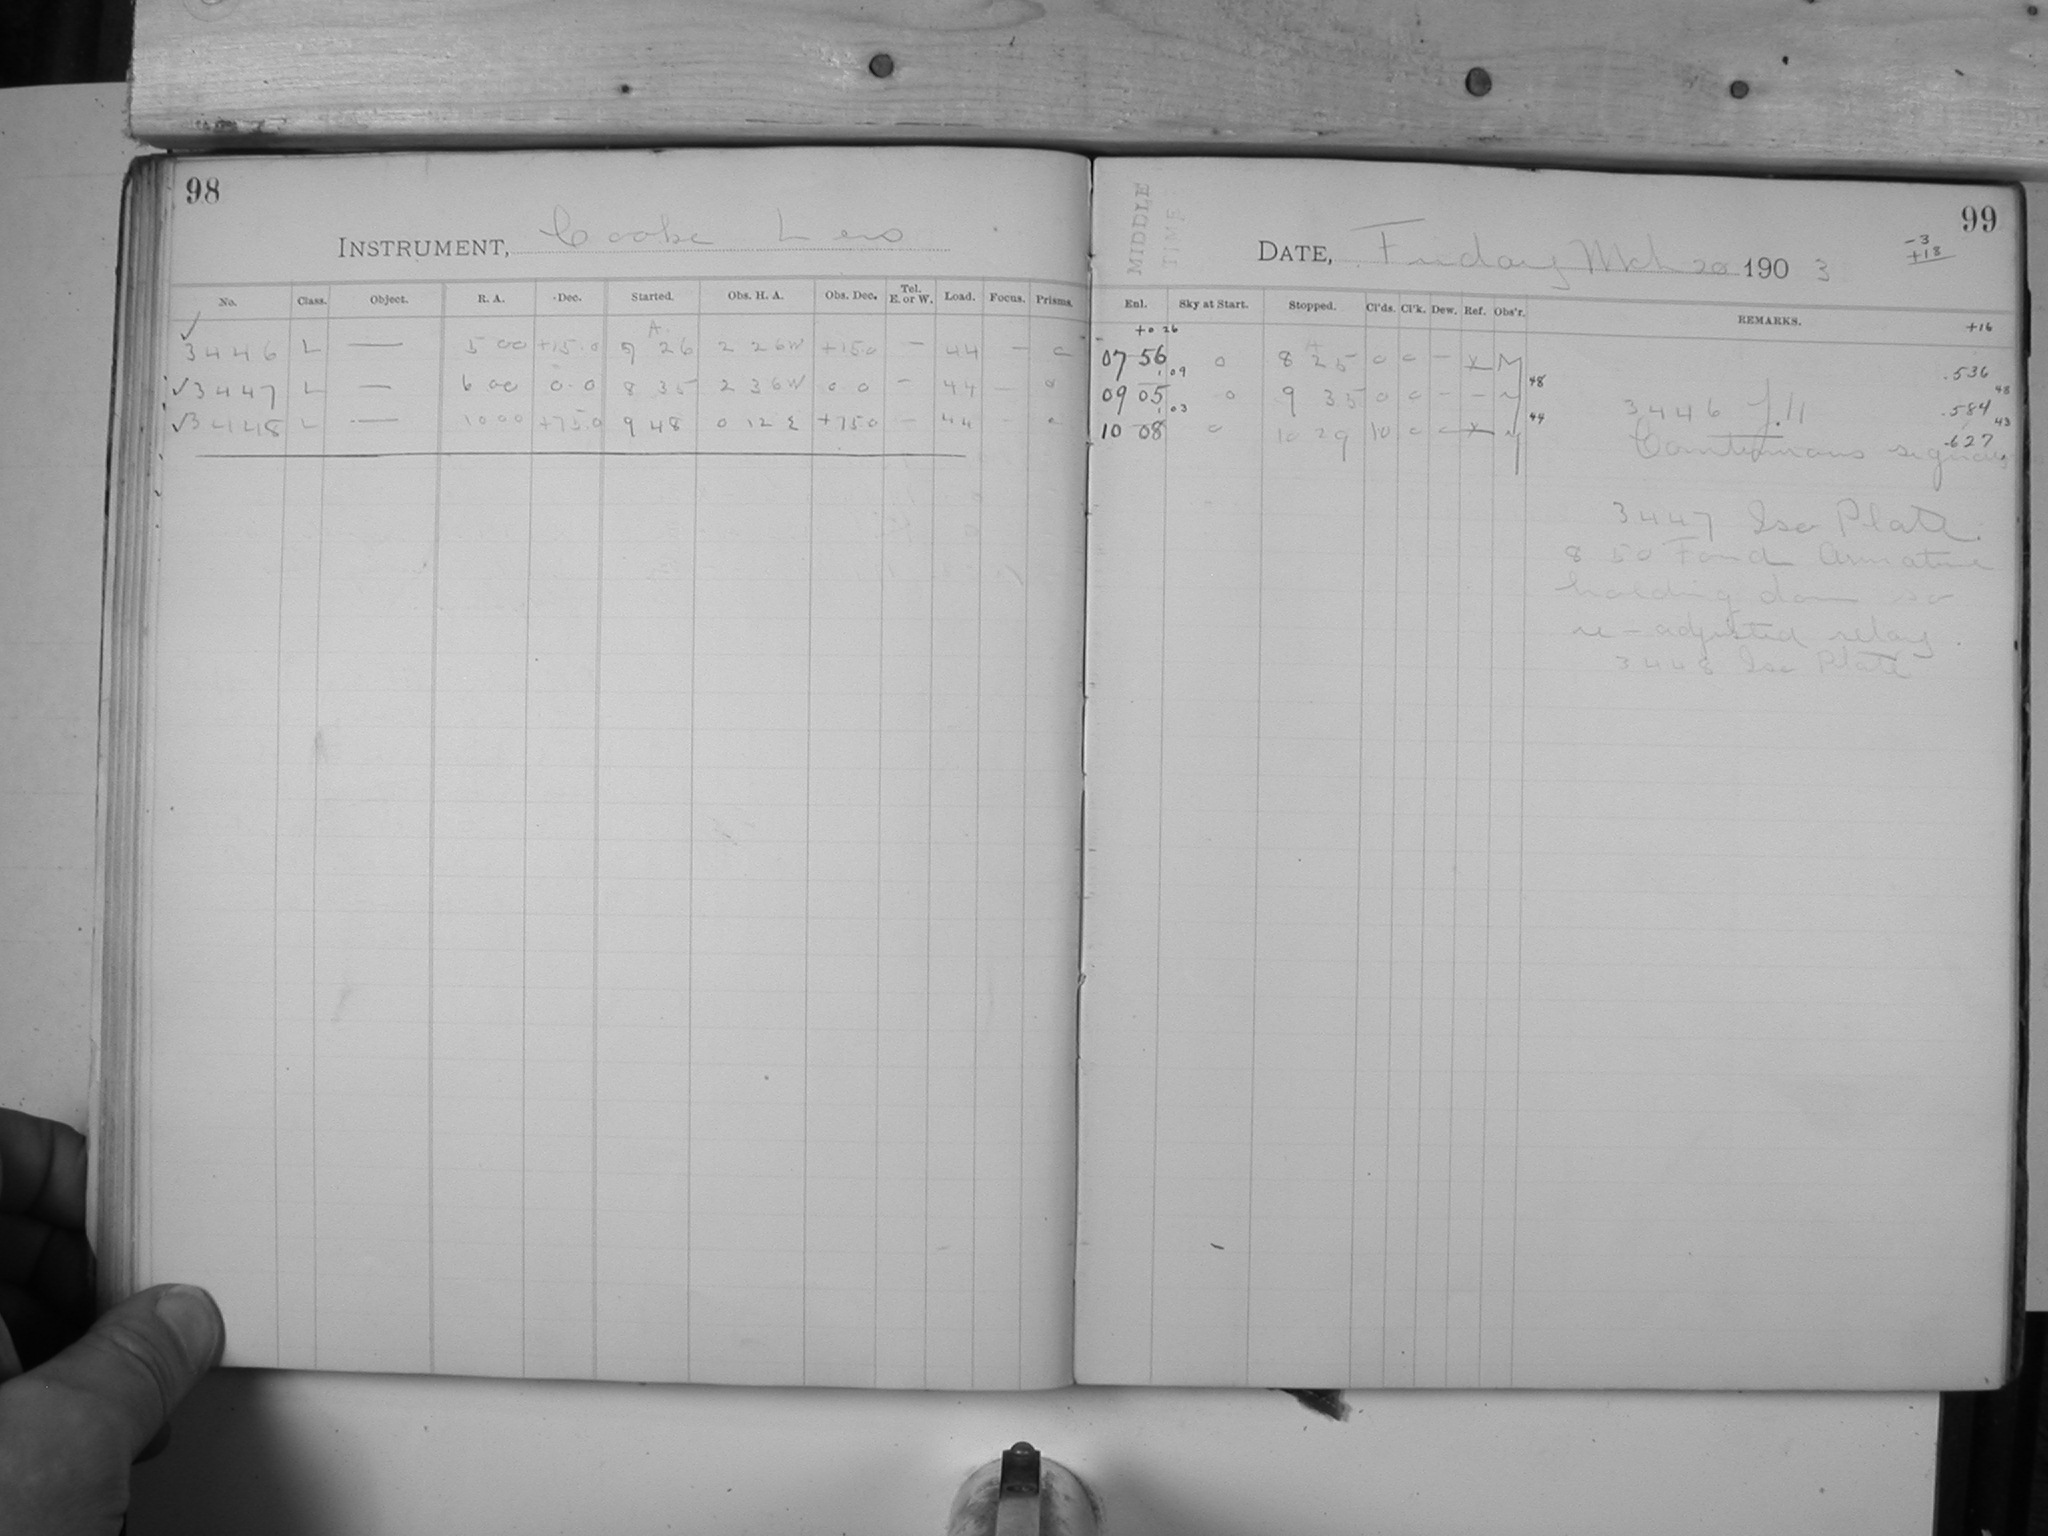 98
INSTRUMENT, Cooke Lens
No. Class. Object. R. A. Dec. Started. Obs. H. A. Obs. Dec. Tel. E. or W. Load. Focus. Prisms.
A.
✓ 3446 L — 5 00 +15.0 7 26 2 26W +15 0 — 44 — 0
✓3447 L — 6 00 0.0 8 35 2 36W 0 0 — 44 — 0
✓3448 L — 10 00 +75.0 9 48 0 12 E +75 0 — 44 — 0
MIDDLE TIME
99
DATE, Friday Mch 20 1903
-3
+18
Enl. Sky at Start. Stopped. Cl'ds. Cl'k. Dew. Ref. Obs'r. REMARKS.
+0 26 +16
07 56 0 8 25 0 0 — x M .536
1 09 48 48
09 05 0 9 35 0 0 — — M .584
1 03 44 43
10 08 0 10 29 10 0 0 x M .627
3446 J. 11
Continuous signals
3447 Iso Plate.
8 50 Found Armature
holding down so
re-adjusted relay.
3448 Iso Plate